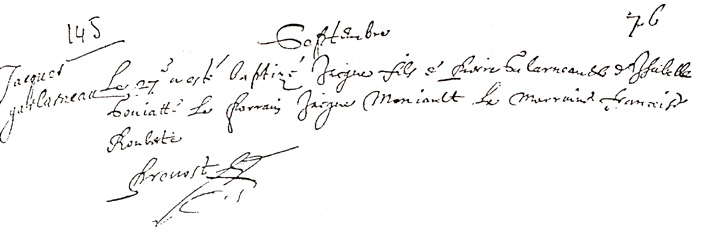 145
76
Septembre
Jacques
galarneau
Le 27e a esté baptizé Jacque fils de Pierre Galarneau & d'Isabelle
Le Parrain Jacque Moniault La Marraine françoise
Prevost